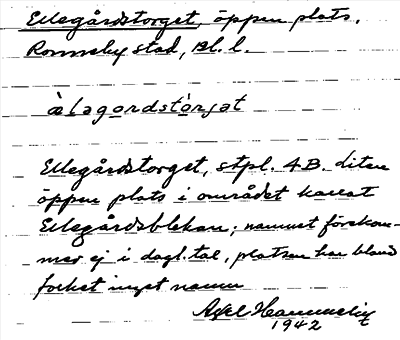 Ellegårdstorget, öppen plats.
Ronneby stad, Bl. l.
æ̀lagordstòrjat
Ellegårdstorget, stpl. 4B. Liten
öppen plats i området kallat
Ellegårdsblekan; namnet förekom-
mer ej i dagl. tal, platsen har bland
folket inget namn
Axel
1942